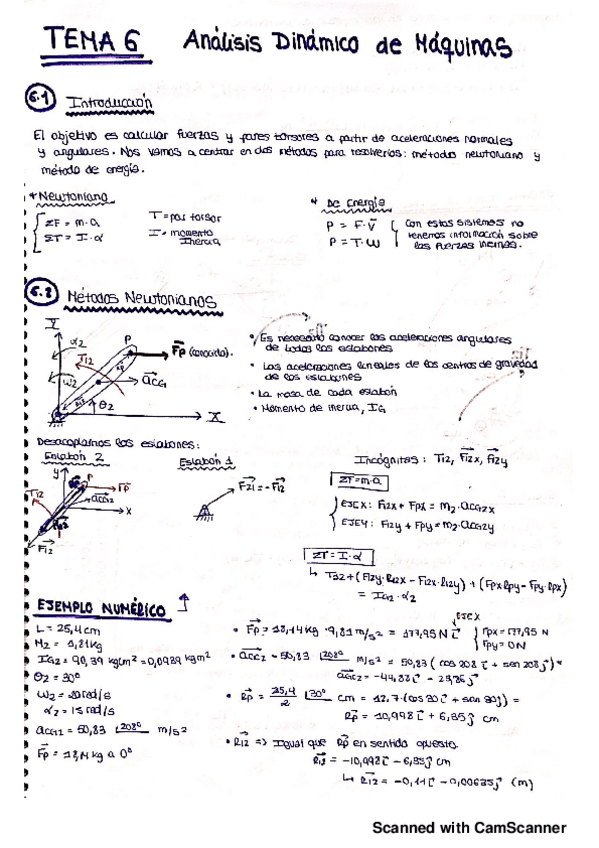 TEMA 6 Análisis Dinámico de Máquinas
6.1 Introducción
El objetivo es calcular fuerzas y pares torsores a partir de aceleraciones normales
y angulares. Nos vamos a centrar en dos métodos para resolverlos: métodos newtoniano y
método de energía.
* Newtoniano
ΣF = m·a
ΣT = I·α
T = par torsor
I = momento
Inercia
* De Energía
P = F·V
P = T·ω
Con estos sistemas no
tenemos información sobre
las fuerzas internas.
6.2 Métodos Newtonianos
Y
X
α2
T12
ω2
P
Fp (conocido).
aCG
θ2
• Es necesario conocer las aceleraciones angulares
de todos los eslabones
• Las aceleraciones lineales de los centros de gravedad
de los eslabones
• La masa de cada eslabón
• Momento de inercia, IG
Desacoplamos los eslabones:
Eslabón 2
Eslabón 1
y
x
P
Fp
T12
aCG2
F12
F21 = -F12
Incógnitas: T12, F12x, F12y
ΣF=m·a
EJE X: F12x + Fpx = m2·aCG2x
EJE Y: F12y + Fpy = m2·aCG2y
ΣT = I·α
T12 + (F12y·R12x - F12x·R12y) + (Fpx Rpy - Fpy·Rpx)
= IG2·α2
EJEMPLO NUMÉRICO
L = 25,4 cm
θ2 = 30°
ω2 = 20 rad/s
α2 = 15 rad/s
aCG2 = 50,83 208° m/s2
Fp = 18,14 kg a 0°
EJE X
• Fp = 18,14 kg · 9,81 m/s2 = 177,95 N i
Fpx = 177,95 N
Fpy = 0N
• aCG2 = 50,83 208° m/s2 = 50,83 (cos 208 i + sen 208 j)
• Rp = 25,4 / 2 30° cm = 12,7·(cos 30 i + sen 30 j) =
Rp = 10,998 i + 6,35 j cm
• R12 => Igual que Rp en sentido opuesto.
R12 = -10,998 i - 6,35 j cm
Scanned with CamScanner